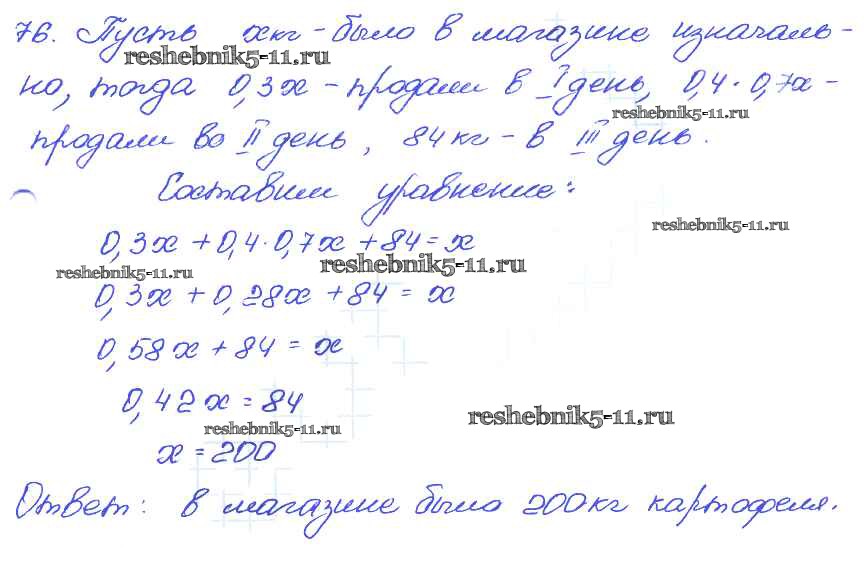 76. Пусть xкг - было в магазине изначаль-
reshebnik5-11.ru
но, тогда 0,3x - продали в I день, 0,4·0,7x -
reshebnik5-11.ru
продали во II день, 84кг - в III день.
Составим уравнение:
reshebnik5-11.ru
0,3x + 0,4·0,7x + 84 = x
reshebnik5-11.ru
reshebnik5-11.ru
0,3x + 0,28x + 84 = x
0,58x + 84 = x
0,42x = 84
reshebnik5-11.ru
reshebnik5-11.ru
x = 200
Ответ: в магазине было 200кг картофеля.